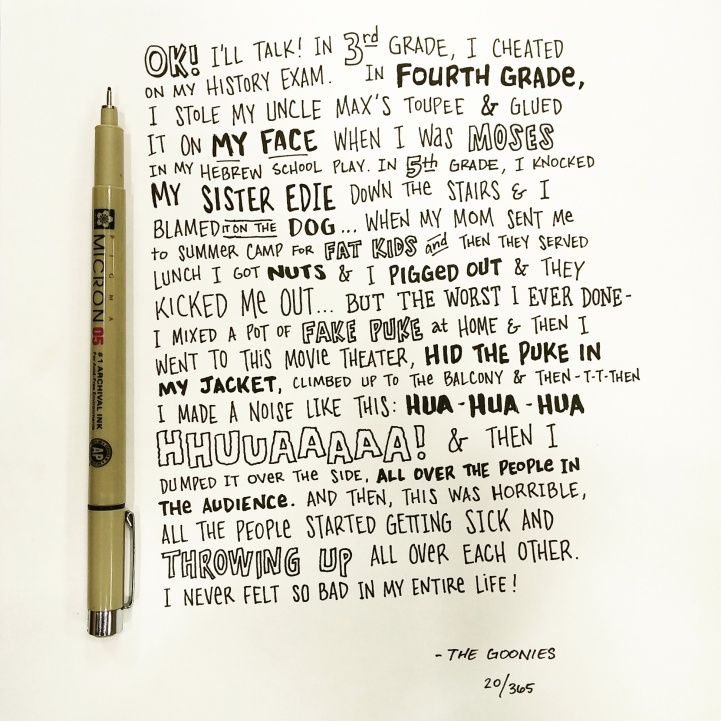 OK! I'LL TALK! IN 3rd GRADE, I CHEATED
ON MY HISTORY EXAM. IN FOURTH GRADE,
I STOLE MY UNCLE MAX'S TOUPEE & GLUED
IT ON MY FACE WHEN I WAS MOSES
IN MY HEBREW SCHOOL PLAY. IN 5th GRADE, I KNOCKED
MY SISTER EDIE DOWN THE STAIRS & I
BLAMED IT ON THE DOG... WHEN MY MOM SENT ME
to SUMMER CAMP FOR FAT KIDS and THEN THEY SERVED
LUNCH I GOT NUTS & I PIGGED OUT & THEY
KICKED ME OUT... BUT THE WORST I EVER DONE-
I MIXED A POT OF FAKE PUKE at HOME & THEN I
WENT TO THIS MOVIE THEATER, HID THE PUKE IN
MY JACKET, CLIMBED UP TO THE BALCONY & THEN-T-T-THEN
I MADE A NOISE LIKE THIS: HUA-HUA-HUA
HHUUAAAAA! & THEN I
DUMPED IT OVER THE SIDE, ALL OVER THE PEOPLE IN
THE AUDIENCE. AND THEN, THIS WAS HORRIBLE,
ALL THE PEOPLE STARTED GETTING SICK AND
THROWING UP ALL OVER EACH OTHER.
I NEVER FELT SO BAD IN MY ENTIRE LIFE!
- THE GOONIES
20/365
PIGMA
MICRON 05
#1 ARCHIVAL INK
AP